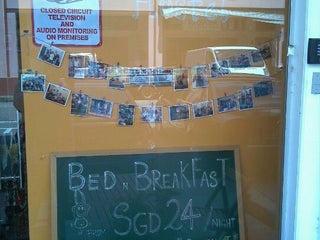 CLOSED CIRCUIT
TELEVISION
AND
AUDIO MONITORING
ON PREMISES
BED N BREAKFAST
SGD 24 /NIGHT